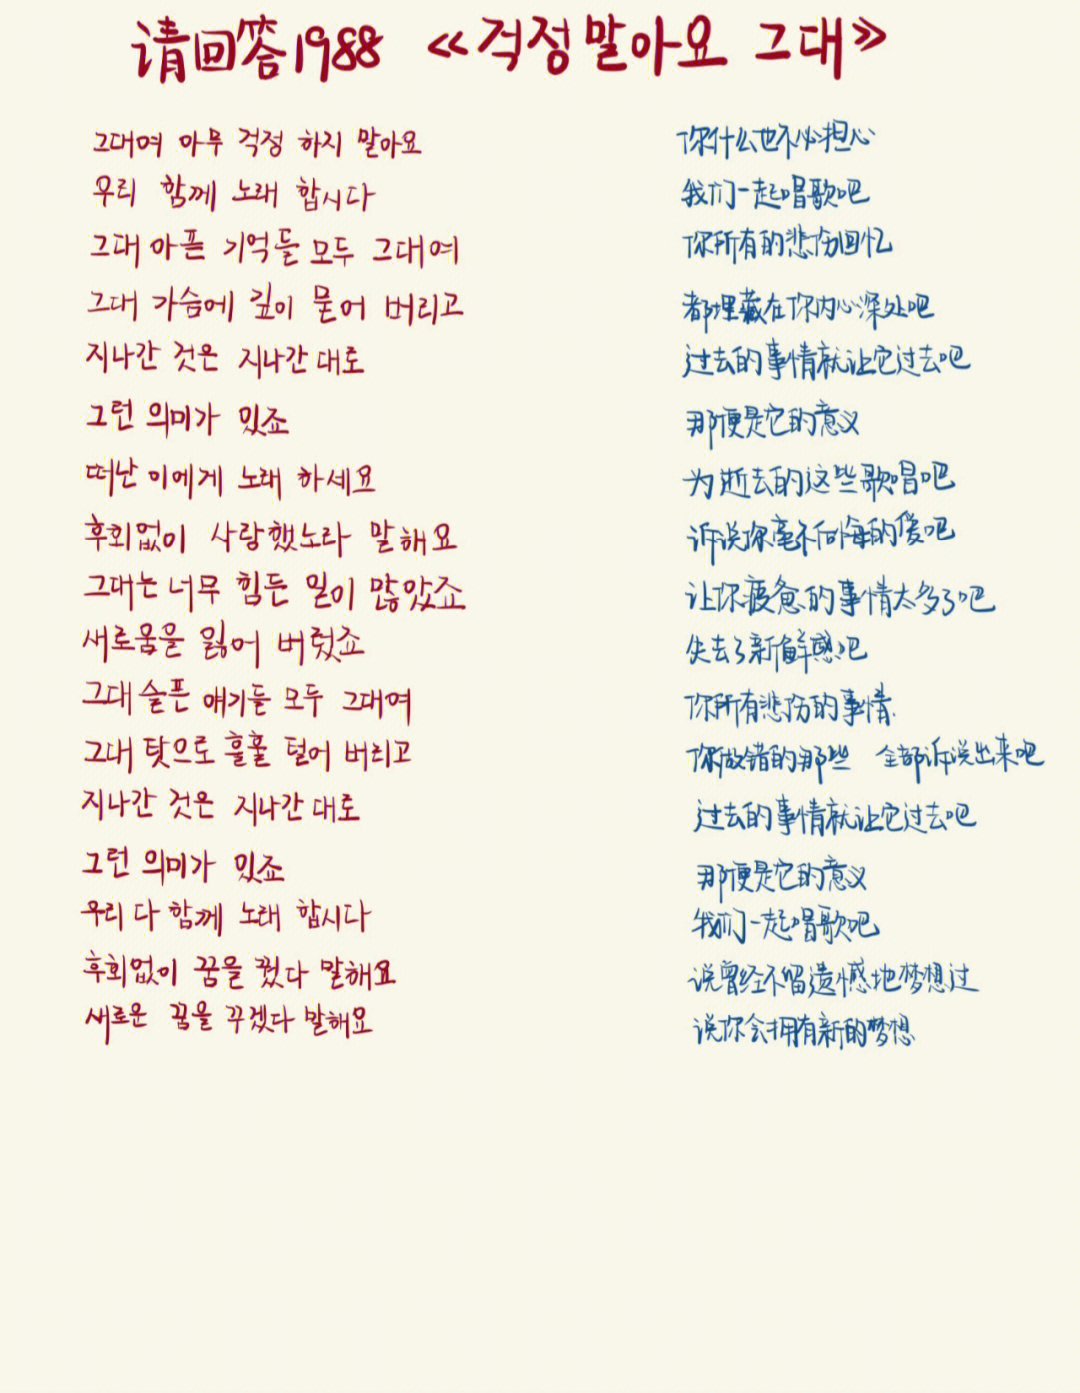 请回答1988 《걱정말아요 그대》
그대여 아무 걱정 하지 말아요 你什么也不必担心
우리 함께 노래 합시다 我们一起唱歌吧
그대 아픈 기억들 모두 그대여 你所有的悲伤回忆
그대 가슴에 깊이 묻어 버리고 都埋藏在你内心深处吧
지나간 것은 지나간 대로 过去的事情就让它过去吧
그런 의미가 있죠 那便是它的意义
떠난 이에게 노래 하세요 为逝去的这些歌唱吧
후회없이 사랑했노라 말해요 诉说你毫不后悔的爱吧
그대는 너무 힘든 일이 많았죠 让你疲惫的事情太多了吧
새로움을 잃어 버렸죠 失去了新鲜感吧
그대 슬픈 얘기들 모두 그대여 你所有悲伤的事情
그대 탓으로 훌훌 털어 버리고 你做错的那些 全都诉说出来吧
지나간 것은 지나간 대로 过去的事情就让它过去吧
그런 의미가 있죠 那便是它的意义
우리 다 함께 노래 합시다 我们一起唱歌吧
후회없이 꿈을 꿨다 말해요 说曾经不留遗憾地梦想过
새로운 꿈을 꾸겠다 말해요 说你会拥有新的梦想